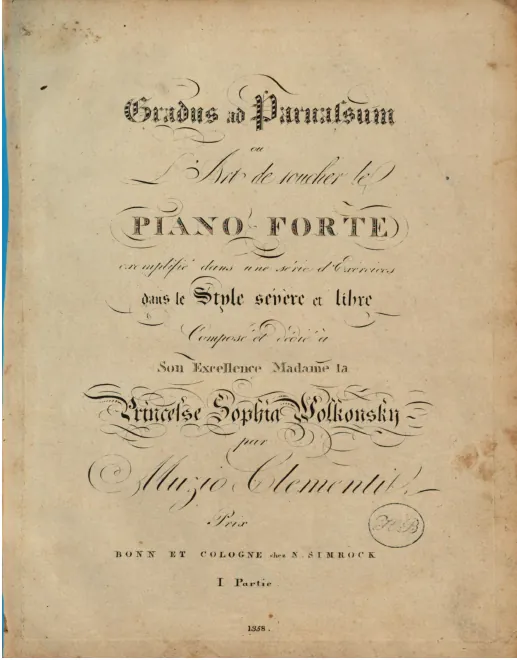 Gradus ad Parnaſsum
ou
L'Art de toucher le
PIANO FORTE
exemplifié dans une série d'Exércices
dans le Style sévère et libre
Composé et dédié à
Son Excellence Madame la
Princeſse Sophia Wolkonsky
par
Muzio Clementi
Prix
BONN ET COLOGNE chez N. SIMROCK
I Partie
1358.